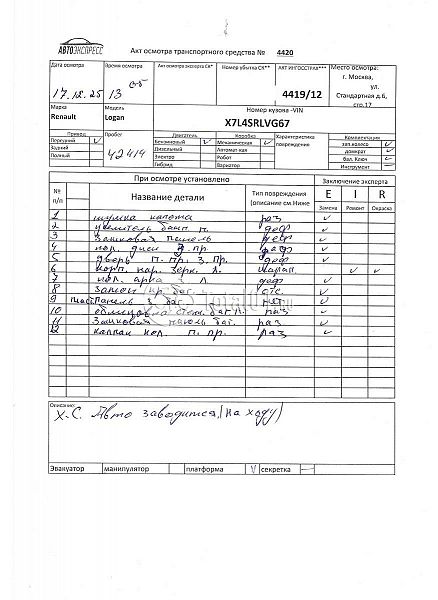 АВТОЭКСПРЕСС
Акт осмотра транспортного средства № 4420
Дата осмотра Время осмотра Акт осмотра эксперта СК* Номер убытка СК** АКТ ИНГОССТРАХ*** Место осмотра:
г. Москва,
ул.
Стандартная д.6,
стр.17
17.12.25 13 06 4419/12
Марка Модель Номер кузова -VIN
Renault Logan X7L4SRLVG67
Привод Пробег Двигатель Коробка Характеристика повреждения Комплектация
Передний Бензиновый Механическая зап.колесо
Задний Дизельный Автоматная домкрат
Полный 42414 Электро Робот бал. Ключ
Гибрид Вариатор Инструмент
При осмотре установлено Заключение эксперта
№ п/п Название детали Тип повреждения (описание см Ниже E I R
Замена Ремонт Окраска
1 шумка капота раз
2 усилитель бамп. п. деф
3 замковая панель деф
4 кол. диск п. пр.
5 дверь п. пр. з. пр. деф
6 корп. нар. зерк. л.
7 кол. арка л деф
8 замок кр. баг. отс.
9 панель з баг.
10 облицовка баг. раз
11 Замковой панель баг. раз
12 колпак кол. п. пр. раз
Описание:
Х-С. Авто заводится, (на ходу)
Эвакуатор манипулятор платформа секретка